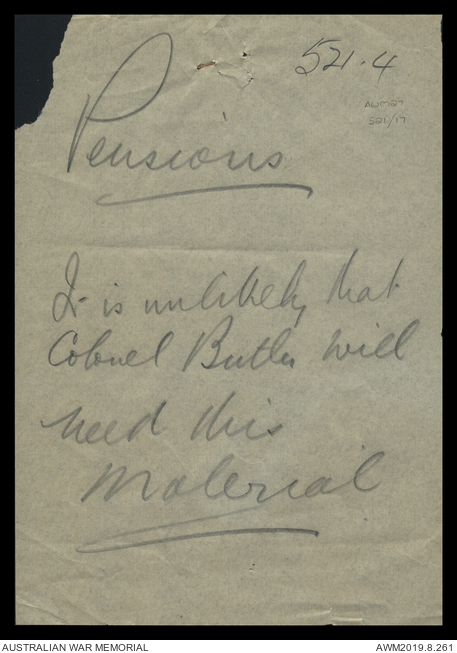 521.4
AWM27
521/17
Pensions
It is unlikely that
Colonel Butler will
need this
Material
AUSTRALIAN WAR MEMORIAL
AWM2019.8.261